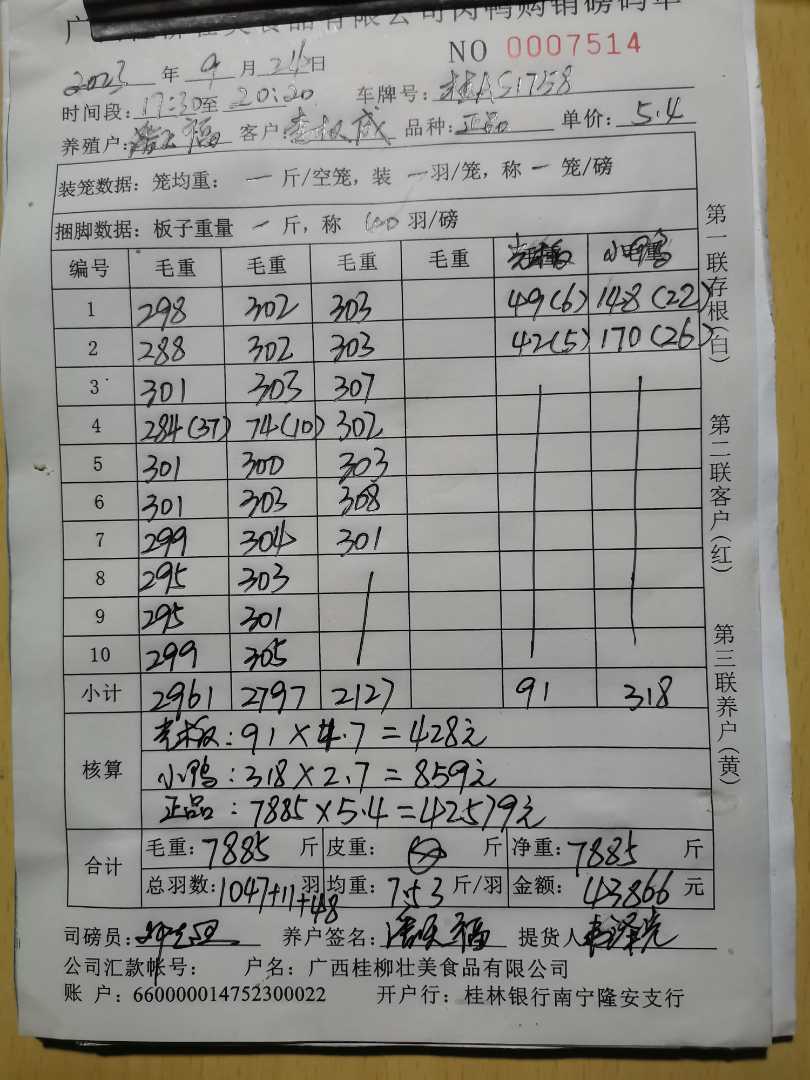 有限公司肉鸭购销磅码单
NO 0007514
2023 年 9 月 24 日
时间段: 17:30 至 20:20 车牌号: 桂AS1758
养殖户: 福 客户: 李权威 品种: 正品 单价: 5.4
装笼数据: 笼均重: 一 斤/空笼, 装 一 羽/笼, 称 一 笼/磅
捆脚数据: 板子重量 一 斤, 称 羽/磅
编号 毛重 毛重 毛重 毛重 小鸭
1 298 302 303 49(6) 148(22)
2 288 302 303 42(5) 170(26)
3 301 303 307
4 284(37) 74(10) 302
5 301 300 303
6 301 303 308
7 299 304 301
8 295 303
9 295 301
10 299 305
小计 2961 2797 2127 91 318
核算
壳板: 91×4.7=428元
小鸭: 318×2.7=859元
正品: 7885×5.4=42579元
合计
毛重: 7885 斤 皮重: 斤 净重: 7885 斤
总羽数: 1047+11+48 羽 均重: 7.53 斤/羽 金额: 43866 元
司磅员: 养户签名: 福 提货人
公司汇款帐号: 户名: 广西桂柳壮美食品有限公司
账 户: 660000014752300022 开户行: 桂林银行南宁隆安支行
第一联存根(白)
第二联客户(红)
第三联养户(黄)